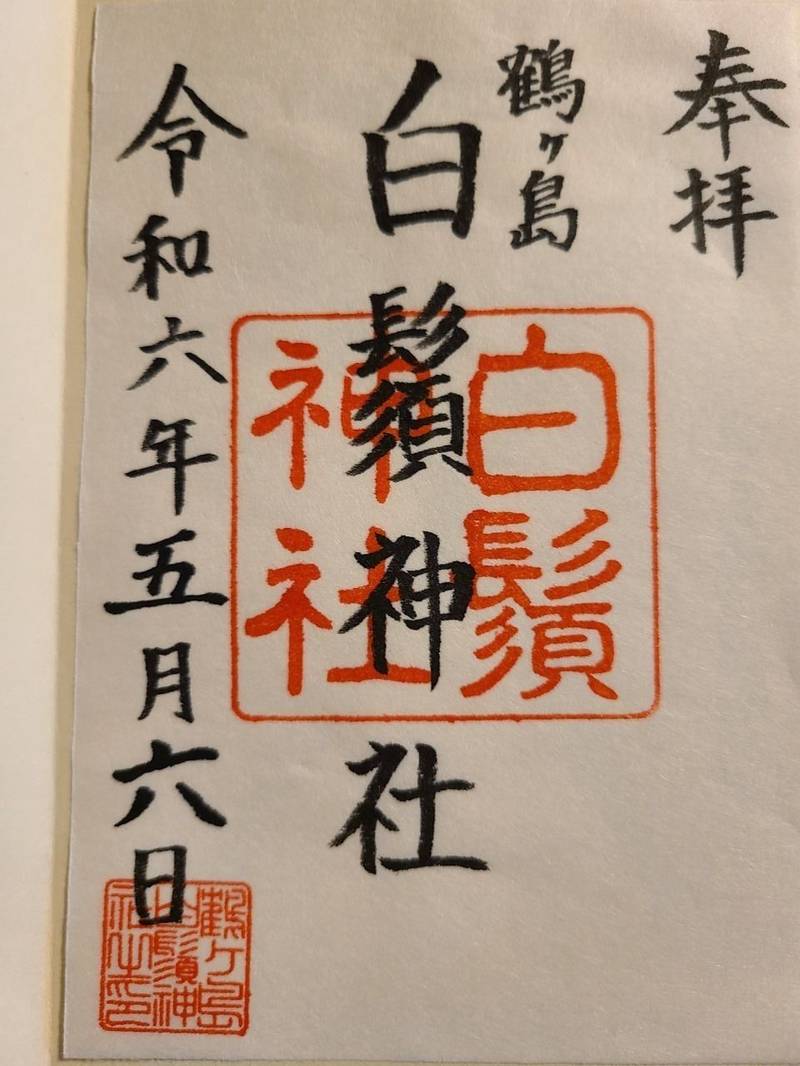 奉拝
鶴ヶ島
白鬚神社
令和六年五月六日
白鬚
神社
鶴ヶ島
白鬚神
社之印